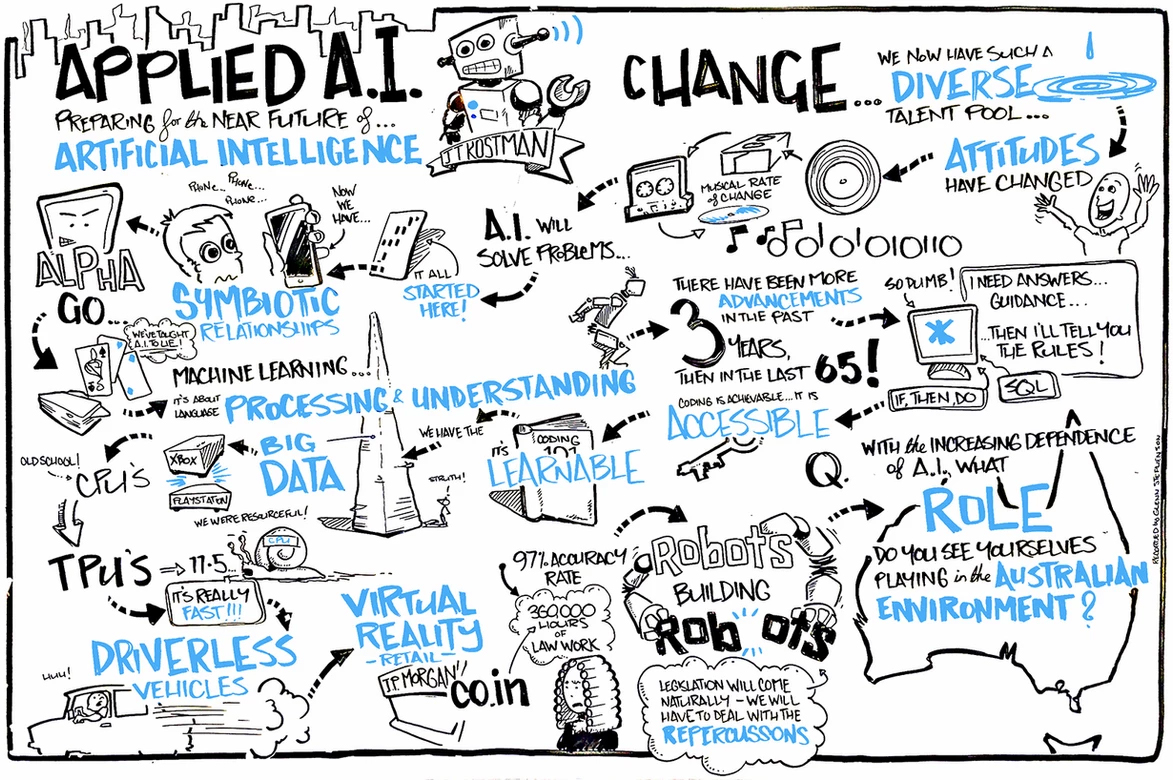 APPLIED A.I.
PREPARING for the NEAR FUTURE of...
ARTIFICIAL INTELLIGENCE
JT KOSTMAN
CHANGE...
WE NOW HAVE SUCH A
DIVERSE
TALENT POOL...
ATTITUDES
HAVE CHANGED
MUSICAL RATE
of CHANGE
A.I. WILL
SOLVE PROBLEMS...
IT ALL
STARTED
HERE!
NOW
WE
HAVE...
PHONE...
PHONE...
PHONE...
SYMBIOTIC
RELATIONSHIPS
ALPHA
GO...
WE'VE TAUGHT
A.I. TO LIE!
MACHINE LEARNING...
IT'S ABOUT
LANGUAGE
PROCESSING & UNDERSTANDING
THERE HAVE BEEN MORE
ADVANCEMENTS
IN THE PAST
3 YEARS,
THEN IN THE LAST 65!
SO DUMB!
I NEED ANSWERS...
GUIDANCE...
...THEN I'LL TELL YOU
THE RULES!
IF, THEN, DO
SQL
CODING IS ACHIEVABLE...IT IS
ACCESSIBLE
CODING
101
IT'S
LEARNABLE
WE HAVE THE
BIG
DATA
STRUTH!
XBOX
PLAYSTATION
WE WERE RESOURCEFUL!
OLD SCHOOL!
CPU'S
TPU'S
17.5...
CPU
IT'S REALLY
FAST!!!
DRIVERLESS
VEHICLES
HUH!
VIRTUAL
REALITY
-RETAIL-
J.P. MORGAN"
CO.IN
97% ACCURACY
RATE
360,000
HOURS
OF
LAW WORK
RobotS
BUILDING
RobotS
LEGISLATION WILL COME
NATURALLY - WE WILL
HAVE TO DEAL WITH THE
REPERCUSSONS
Q. WITH the INCREASING DEPENDENCE
of A.I., WHAT
ROLE
DO YOU SEE YOURSELVES
PLAYING in the AUSTRALIAN
ENVIRONMENT?
RECORDED by GLENN STEPHENSON